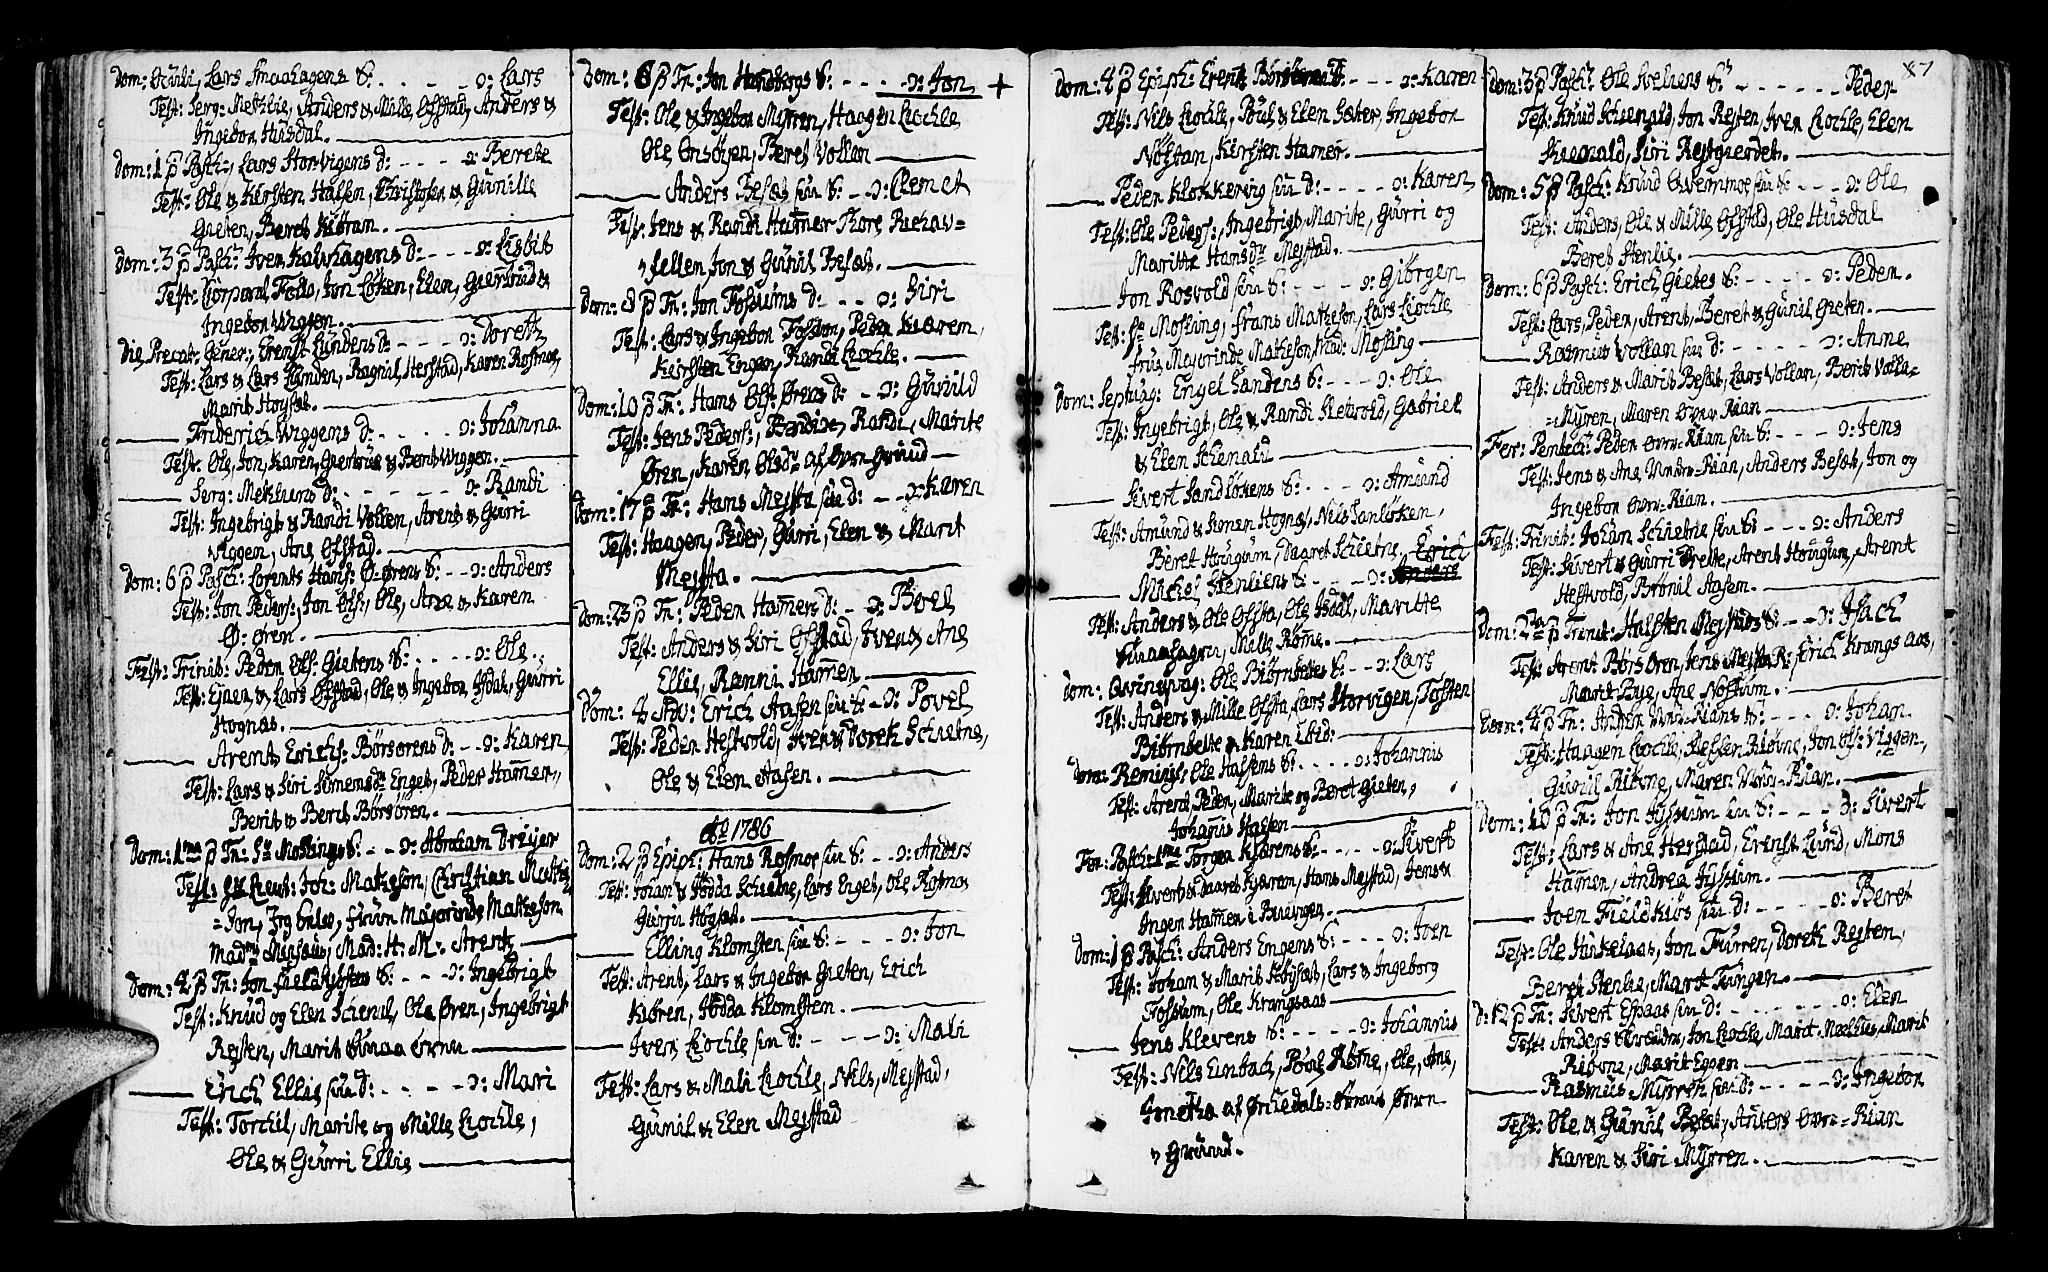 Dom: Oculi, Lars Smaahagens S: - - - - ɔ: Lars
Test: Serg: Metzlie, Anders & Mille Ofstad, Anders &
Ingebor Husdal.
Dom: 1 p Pasch: Lars Horvigens d: - - - - ɔ: Berete
Test: Ole & Kirsten Halsen, Christopher & Gunille
Gieten, Beret
Dom: 3 p Pasch: Iver Kalvhagens d: - - - - ɔ: Lisbit
Test: Corporal Follo, Jon Løken, Elen, Giertrud &
Ingebor Wiggen.
Die Precat: Gener: Ernst Lundens d: - - - ɔ: Doreth
Test: Lars & Lars Lunden, Ragnil Herstad, Karen Rosmoe,
Marit Høysat.
Friderich Wiggens d: - - - - - ɔ: Johanna
Test: Ole, Jon, Karen, Giertrue & Berit Wiggen.
Serg: Metzliens d: - - - - - - ɔ: Randi
Test: Ingebrigt & Randi Vollen, Arent & Gurri
Viggen, Ane Ofstad.
Dom: 6 p Pasch: Lorents Hans: Ø: Ørens S: - - ɔ: Anders
Test: Jon Peders:, Jon Ols:, Ole, Ane & Karen
Ø: Øren.
Fest: Trinit: Peder Ols: Gietens S: - - - - - ɔ: Ole
Test: Ejnen & Lars Ofstad, Ole & Ingebor Isdal, Gurri
Hognas.
Arent Erichs: Børsørens d: - - ɔ: Karen
Test: Lars & Siri Simensdr Enget, Peder Hammer,
Berit & Berit Børsøren.
Dom: 1ma p Tr: Sr Mossings S: - - ɔ: Abraham Dreyer
Test: Lieut: Joh: Matheson, Christian Mathe
=son, Frue Majorinde Matheson
Mad: H: M: Arentz
Dom: 4 p Tr: Jon Fieldkiøsens S: - - - ɔ: Ingebrigt
Test: Knud og Elen Schenal, Ole Øren, Ingebrigt
Resten, Marit
Erich Ellis sin d: - - - - - ɔ: Mari
Test: Torchil, Marite og Mille Lochle,
Ole & Gurri Ellis
Dom: 6 p Tr: Jon Hombergs S: - - - - ɔ: Jon +
Test: Ole & Ingebor Myrren, Haagen Lochle
Ole Onsøyen, Beret Vollan
Anders Besas sin S: - - ɔ: Clemet
Test: Jens & Randi Hammer Tore Rethav=
=sellen Jon & Gunil Besas.
Dom: 8 p Tr: Jon Fossums d: - - ɔ: Siri
Test: Lars & Ingebor Fossum, Peder Kiærem,
Kirsten Engen, Randi Lochle.
Dom: 10 p Tr: Hans Ols: Ørens d: - ɔ: Gunild
Test: Jens Peders:, Bendix, Randi, Marite
Øren, Karen Olsdr af Øren Grund
Dom: 17 p Tr: Hans Mejsta sin d: - - ɔ: Karen
Test: Haagen, Peder, Gurri, Elen & Marit
Mejsta.
Dom: 23 p Tr: Peder Hammers d: - ɔ: Berel
Test: Anders & Siri Ofstad, Iver & Ane
Ellis, Ranni Hammer
Dom: 4 Adv: Erich Aasen sin S: - ɔ: Povel
Test: Peder Hestvold, Iver & Doreth Schietne,
Ole & Elen Aasen.
Ao 1786
Dom: 2 p Epiph: Hans Rosmoe sin S: - - ɔ: Anders
Test: Johan & Hodda Schietne, Lars Enget, Ole Rosmoe
Gurru Høgsat.
Elling Klomsten sin S: - - - - ɔ: Jon
Test: Arent, Lars & Ingebor Gieten, Erich
Kiøren, Hodda Klomsten.
Iver Lochle sin d: - - - - ɔ: Mali
Test: Lars & Mali Lochle, Nils, Mejstad,
Gunil & Elen Mejstad
Dom: 4 p Epiph: Erent - - ɔ: Karen
Test: Nils Lochle, Poul & Elen Sæter, Ingebor
Nøstan, Kirsten Hamer.
Peder Klokkerens sin d: - - - - ɔ: Karen
Test: Ole Peders:, Ingebrigt, Marite, Gurri og
Maritte Hansdr Mejstad.
Jon Rosvold sin S: - - - ɔ: Giørgen
Test: Sr Mossing, Frans Matheson, Lars Lochle
Frue Majorinde Matheson, Mad: Mossing
Dom: Septuag: Engel Sandens S: - - - ɔ: Ole
Test: Ingebrigt, Ole & Randi Solvold, Gabriel
& Elen Schenald
Sivert Sandløkens S: - - - - ɔ: Amund
Test: Amund & Simen Hognes, Nils Sanløken,
Beret Hougum, Daaret Schietne. Erich
Michel Stenliens S: - - - ɔ: Anders
Test: Anders & Ole Ofsta, Ole Isdal, Maritte
Smaahagen, Mille Rømme.
Dom: Qvinqvag: Ole Biørnbetes S: - - ɔ: Lars
Test: Anders & Mille Ofsta, Lars Horvigen, Tosten
Biørnbette & Karen Eltid:
Dom: Reminis: Ole Halsens S: - - - - ɔ: Johannis
Test: Arent, Peder, Marite og Beret Gieten,
Johannis Halsen
Fer: Pasch: 1ma Torger Kjærems S: - - - - ɔ: Sivert
Test: Sivert & Daaret Kjærem, Hans Mejstad, Jens &
Inger Hammer i
Dom: 1 p Pasch: Anders Engens S: - - - ɔ: Joen
Test: Johan & Marit Høysat, Lars & Ingeborg
Fossum, Ole Krangsaas
Jens Klevens S: - - - - ɔ: Johannis
Test: Nils Einbach, Povel Rømme, Ole, Ane,
Gonetha af Ørkedals: Øren
Grund.
87
Dom: 3 p Pasch: Ole S: - - - - - - Peder
Test: Knud Schenald, Jon Resten, Iver Lochle, Elen
Schenald, Siri Restgierdet.
Dom: 5 p Pasch: Knud Qvernmoe sin S: - - - ɔ: Ole
Test: Anders, Ole & Mille Ofstad, Ole Husdal
Beret Stenlie.
Dom: 6 p Pasch: Erich Gietes S: - - - - - ɔ: Peder.
Test: Lars, Peder, Arent, Beret & Gunil Gieten.
Rasmus Vollan sin d: - - - - - ɔ: Anne
Test: Anders & Marit Besas, Lars Vollan, Berit Volla=
=Myren, Maren over Rian
Fer: Pentec: Peder over Rian sin S: - - - ɔ: Jens
Test: Jens & Ane under Rian, Anders Besat, Jon og
Ingebor over Rian.
Fest: Trinit: Johan Schietne sin S: - - - ɔ: Anders
Test: Sivert & Gurri Treste, Arent Hougum, Arent
Hestvold, Brønil Aasem.
Dom: 2da p Trinit: Halsten Mejstads S: - - ɔ: Isach
Test: Arent Børsøren, Jens Mejsta, Erich Krangsaas,
Marit Bye, Ane Nossum.
Dom: 4 p Tr: Anders under Rians S: - - - ɔ: Johan
Test: Haagen Lochle, Steffen Rløvne, Jon Ols: Viggen,
Gunil Riløvne, Maren under Rian.
Dom: 10 p Tr: Jon Jyssum sin S: - - - - ɔ: Sivert
Test: Lars & Ane Herstad, Ernst Lund, Mons
Hammer, Andrea Jyssum.
Joen Fieldkiøs sin d: - - - - ɔ: Beret
Test: Ole Hinkelaas, Jon Furren, Doreth Resten,
Beret Stenlie, Marit Tungen.
D: 12 p Tr: Sivert Espaas sin d: - - - - - - ɔ: Elen
Test: Anders Jon Lochle, Marit Metzlie, Marit
Riøvne, Marit Eggen
Rasmus Myrren sin d: - - - - - ɔ: Ingebor
Test: Ole & Gunil Besat, Anders over=Rian
Karen & Siri Myrren.